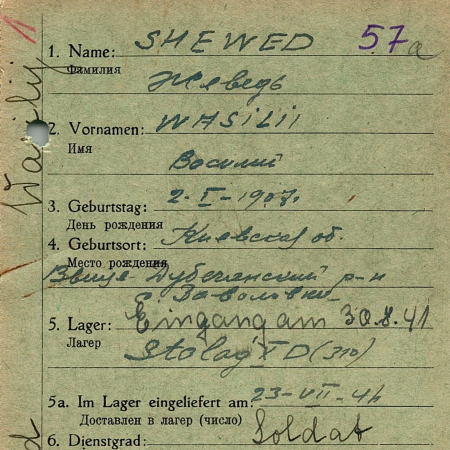 1. Name: SHEWED 57a
Фамилия
Жеведь
2. Vornamen: WASILII
Имя
Василий
3. Geburtstag: 2-I-1907.
День рождения
4. Geburtsort: Киевская об.
Место рождения
р-н
5. Lager: Eingang am 30.8.41
Лагер
Stalag XD (310)
5a. Im Lager eingeliefert am: 23-VII-41
Доставлен в лагер (число)
6. Dienstgrad: Soldat
Wasilij